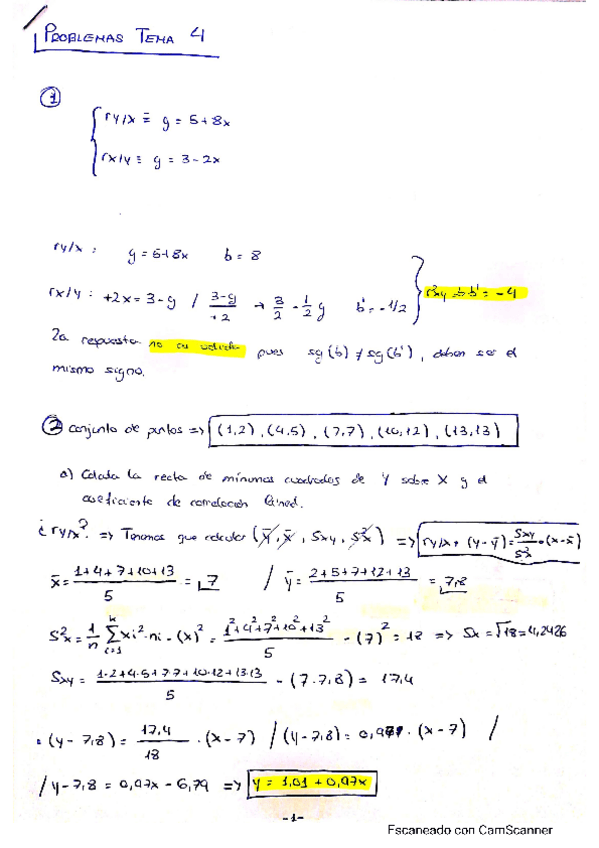 PROBLEMAS TEMA 4
1
ry/x ≡ y = 5+8x
rx/y ≡ y = 3-2x
ry/x : y = 5+8x b = 8
rx/y : +2x = 3-y / 3-y/+2 → 3/2 - 1/2 y b' = -1/2 r²xy = b·b' = -4
La respuesta no es válida pues sg(b) ≠ sg(b'), deben ser el
mismo signo.
2 conjunto de puntos => (1,2), (4,5), (7,7), (10,12), (13,13)
a) Calcula la recta de mínimos cuadrados de Y sobre X y el
coeficiente de correlación lineal.
¿ry/x? => Tenemos que calcular (ȳ, x̄, Sxy, S²x) => ry/x: (y-ȳ) = Sxy/S²x · (x-x̄)
x̄ = 1+4+7+10+13/5 = 7 / ȳ = 2+5+7+12+13/5 = 7,8
S²x = 1/n Σ xi²·ni - (x)² = 1²+4²+7²+10²+13²/5 - (7)² = 18 => Sx = √18 = 4,2426
Sxy = 1·2+4·5+7·7+10·12+13·13/5 - (7·7,8) = 17,4
(y-7,8) = 17,4/18 · (x-7) / (y-7,8) = 0,97 · (x-7) /
/ y-7,8 = 0,97x - 6,79 => y = 1,01 + 0,97x
-1-
Escaneado con CamScanner